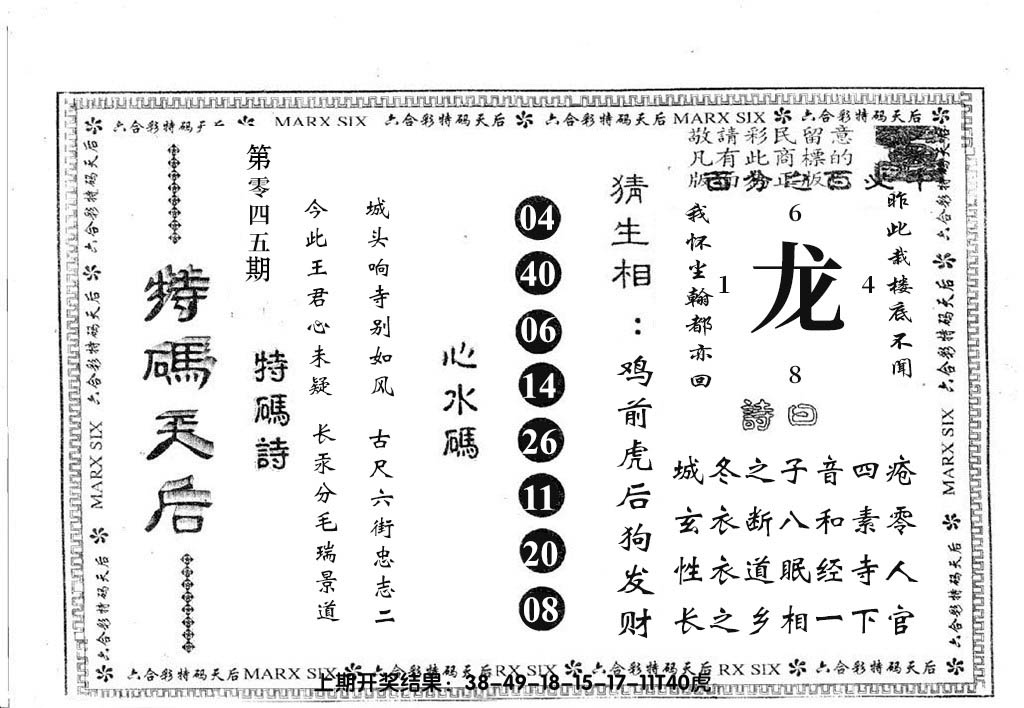 六合彩特码天后 MARX SIX 六合彩特码天后 六合彩特码天后 MARX SIX 六合彩特码天后
敬請彩民留意
凡有此商標的
昨此栽楼底不闻
我怀尘翰都亦回
6
1
龙
4
8
詩曰
疮零人官
四素寺下
音和经一
子八眠相
之断道乡
冬衣衣之
城玄性长
猜生相：鸡前虎后狗发财
04
40
06
14
26
11
20
08
心水碼
城头响寺别如风 古尺六街忠志二
今此王君心未疑 长汞分毛瑞景道
第零四五期
特碼詩
特碼天后
六合彩特码天后
六合彩特码天后
MARX SIX
六合彩特码天后
六合彩特码天后
六合彩特码天后
MARX SIX
六合彩特码天后
六合彩特码天后 MARX SIX 六合彩特码天后 RX SIX 六合彩特码天后 RX SIX 六合彩特码天后
上期开奖结果：38-49-18-15-17-11T40虎